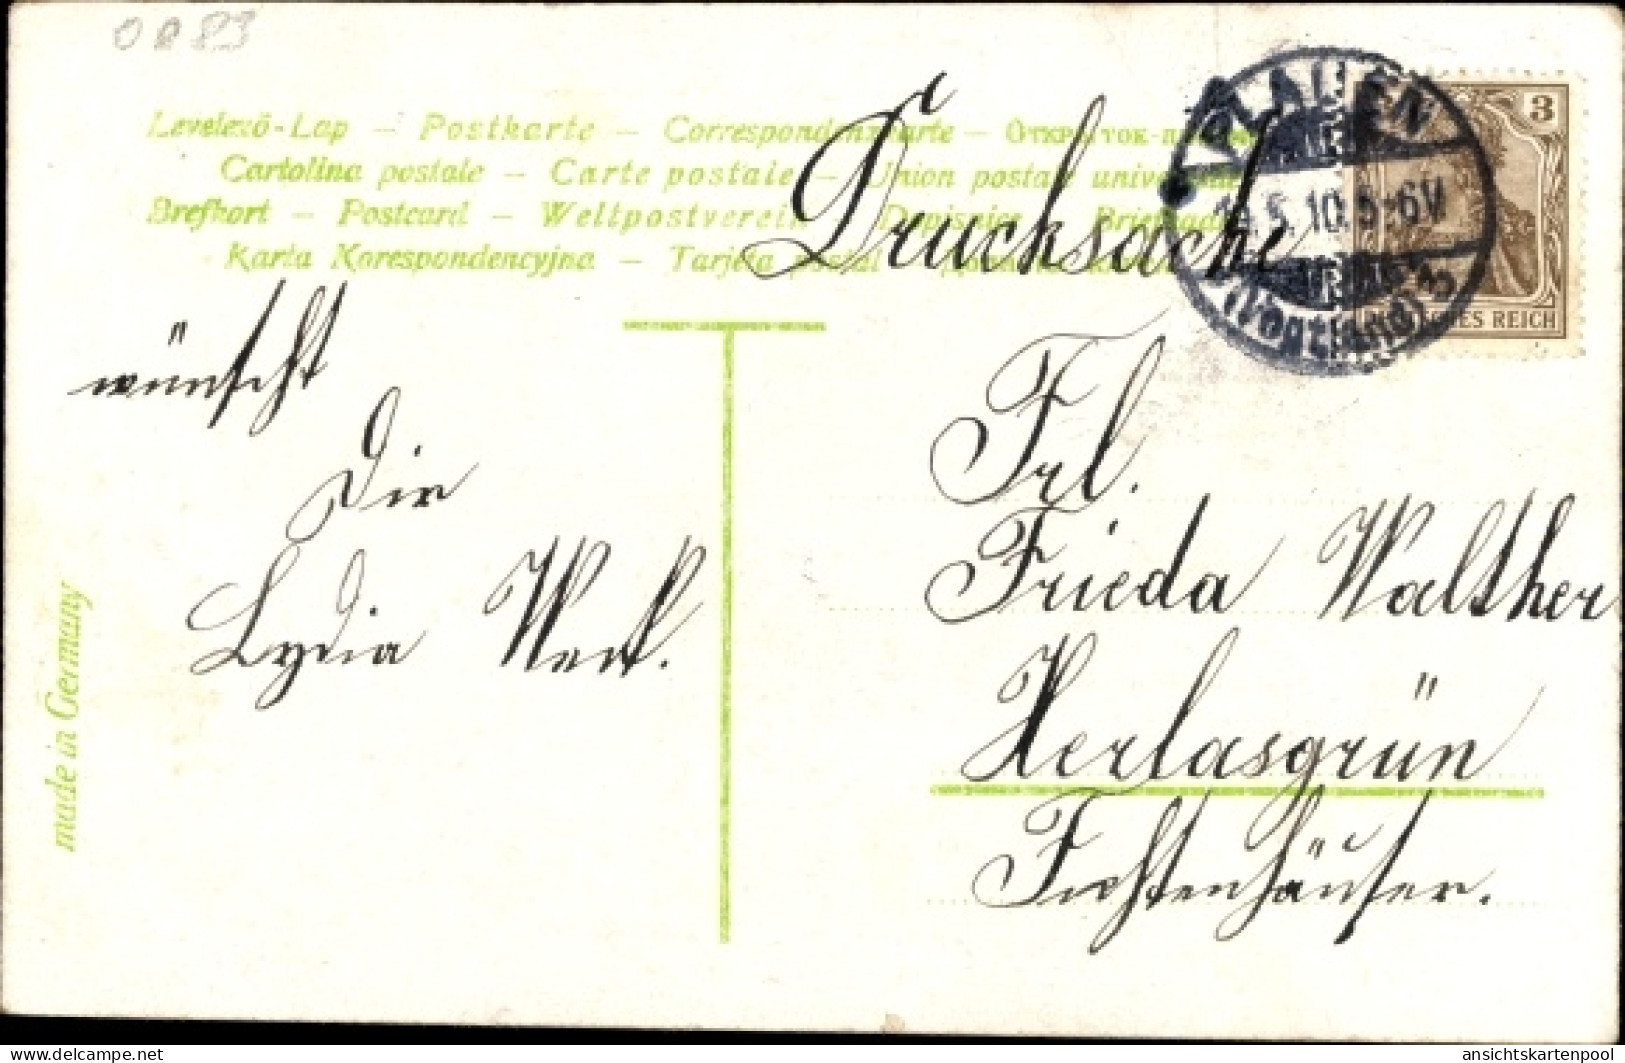 0083
Levelező-Lap – Postkarte – Correspondenzkarte –
Cartolina postale – Carte postale – Union postale
Brefkort – Postcard – Weltpostverein –
Karta Korespondencyjna – Tarjeta postal –
Drucksache
PLAUEN
5. 10. 5-6V
(Vogtland) 3
3
DEUTSCHES REICH
wünscht
Dir
Lydia
made in Germany
Frl.
Frieda Walther
Herlasgrün
Fichtenhäuser.
www.delcampe.net
ansichtskartenpool